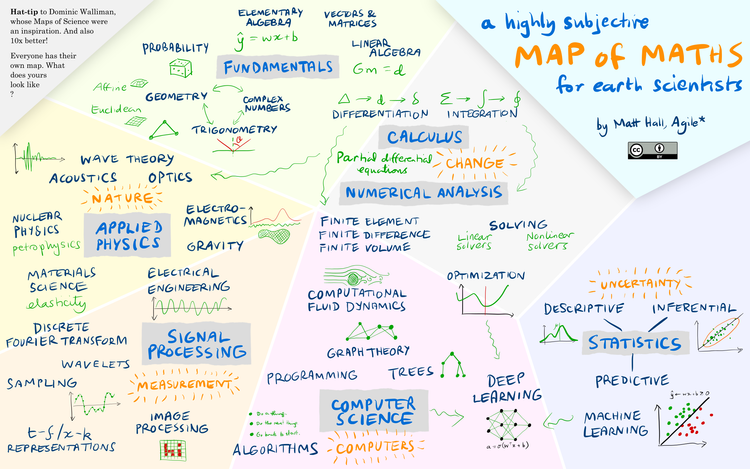 Hat-tip to Dominic Walliman,
whose Maps of Science were
an inspiration. And also
10x better!
Everyone has their
own map. What
does yours
look like
?
a highly subjective
MAP OF MATHS
for earth scientists
by Matt Hall, Agile*
CC BY
ELEMENTARY
ALGEBRA
ŷ = wx + b
VECTORS &
MATRICES
PROBABILITY
LINEAR
ALGEBRA
Gm = d
FUNDAMENTALS
Affine
GEOMETRY
Euclidean
COMPLEX
NUMBERS
TRIGONOMETRY
Δ → d → δ
DIFFERENTIATION
Σ → ∫ → ∮
INTEGRATION
CALCULUS
Partial differential
equations
CHANGE
NUMERICAL ANALYSIS
FINITE ELEMENT
FINITE DIFFERENCE
FINITE VOLUME
SOLVING
Linear
solvers
Nonlinear
solvers
OPTIMIZATION
WAVE THEORY
ACOUSTICS
OPTICS
NATURE
NUCLEAR
PHYSICS
petrophysics
APPLIED
PHYSICS
ELECTRO-
MAGNETICS
GRAVITY
MATERIALS
SCIENCE
elasticity
ELECTRICAL
ENGINEERING
DISCRETE
FOURIER TRANSFORM
SIGNAL
PROCESSING
WAVELETS
SAMPLING
MEASUREMENT
t-f/x-k
REPRESENTATIONS
IMAGE
PROCESSING
COMPUTATIONAL
FLUID DYNAMICS
GRAPH THEORY
PROGRAMMING
TREES
COMPUTER
SCIENCE
Do a thing.
Do the next thing.
Go back to start.
ALGORITHMS
COMPUTERS
DEEP
LEARNING
UNCERTAINTY
DESCRIPTIVE
INFERENTIAL
STATISTICS
PREDICTIVE
MACHINE
LEARNING